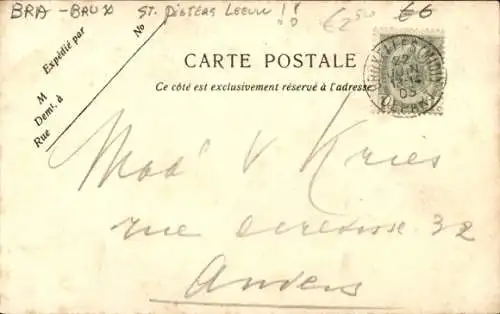 BRA - BRUX ST. PIETERS LEEUW !! €2,50 €6
Expédié par
No
M
Demt. à
Rue
CARTE POSTALE
Ce côté est exclusivement réservé à l'adresse
BRUXELLES
DEPART
Mad V Kries
rue 32
Anvers